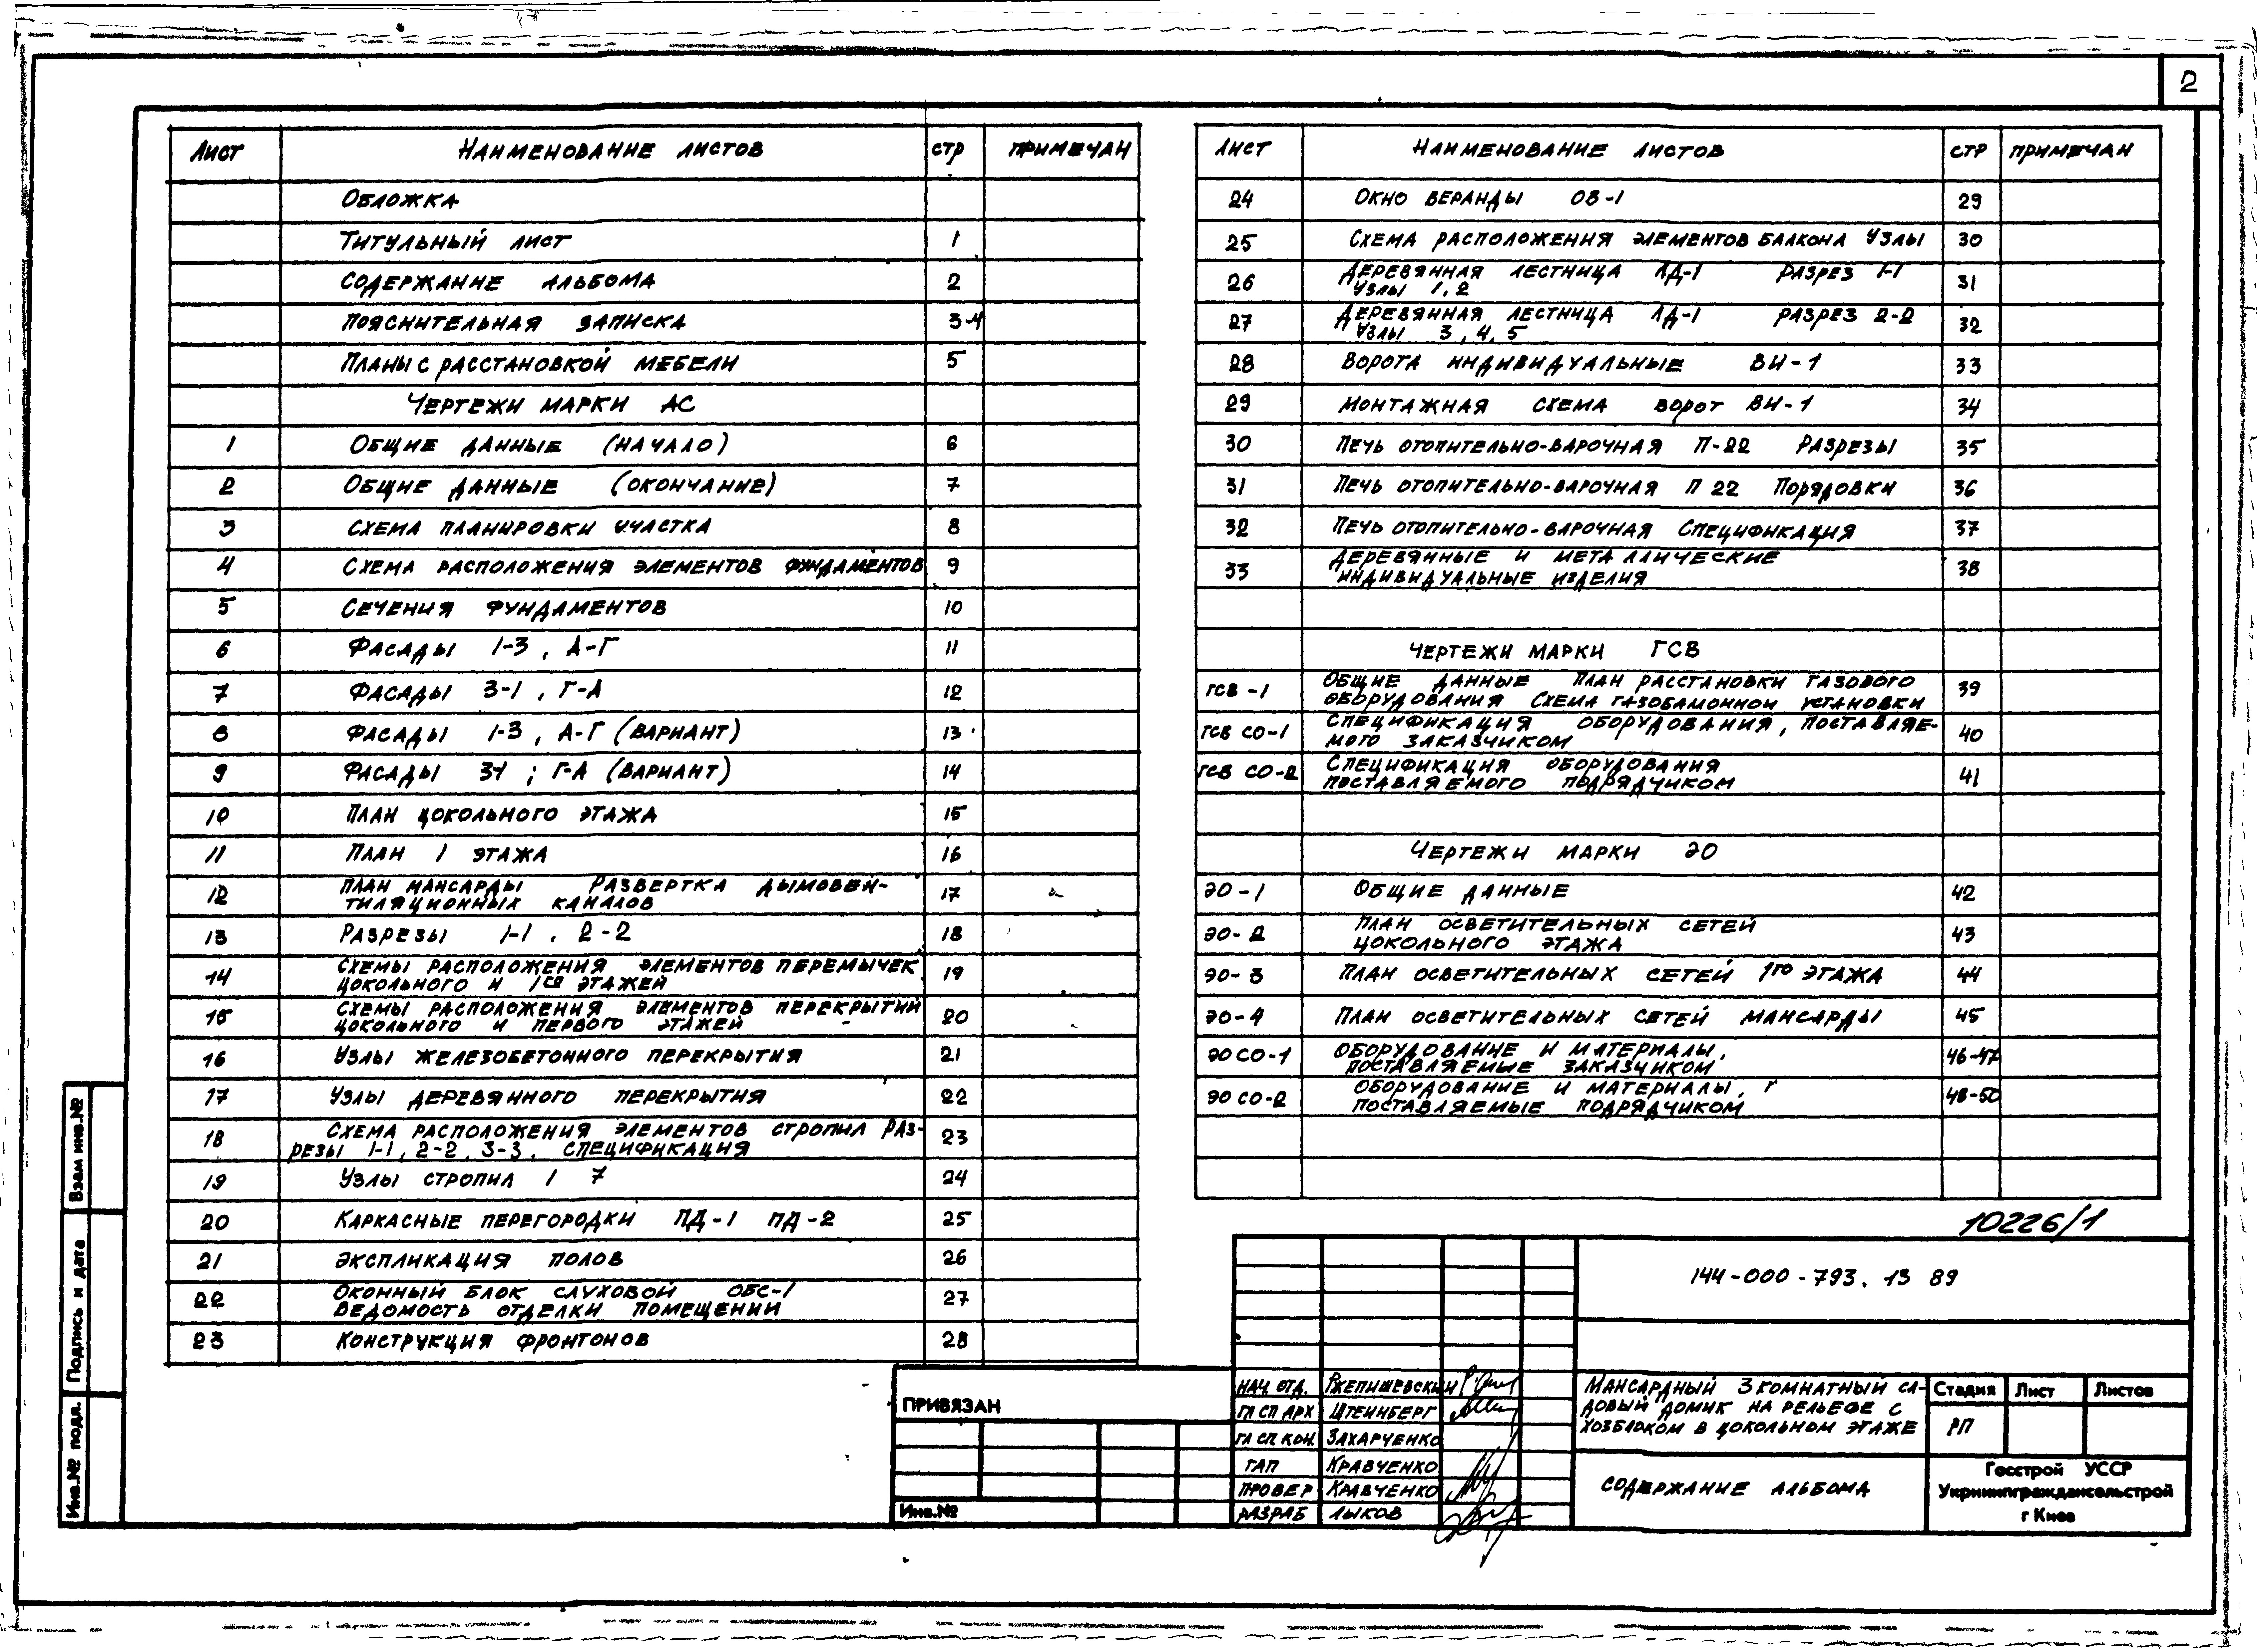 2
Лист Наименование листов стр Примечан
Обложка
Титульный лист 1
Содержание альбома 2
Пояснительная записка 3-4
Планы с расстановкой мебели 5
Чертежи марки АС
1 Общие данные (начало) 6
2 Общие данные (окончание) 7
3 Схема планировки участка 8
4 Схема расположения элементов фундаментов 9
5 Сечения фундаментов 10
6 Фасады 1-3, А-Г 11
7 Фасады 3-1, Г-А 12
8 Фасады 1-3, А-Г (вариант) 13
9 Фасады 3-1; Г-А (вариант) 14
10 План цокольного этажа 15
11 План 1 этажа 16
12 План мансарды Развертка дымовен-
тиляционных каналов 17
13 Разрезы 1-1, 2-2 18
14 Схемы расположения элементов перемычек
цокольного и 1го этажей 19
15 Схемы расположения элементов перекрытий
цокольного и первого этажей 20
16 Узлы железобетонного перекрытия 21
17 Узлы деревянного перекрытия 22
18 Схема расположения элементов стропил Раз-
резы 1-1, 2-2, 3-3. Спецификация 23
19 Узлы стропил 1 7 24
20 Каркасные перегородки ПД-1 ПД-2 25
21 Экспликация полов 26
22 Оконный блок слуховой ОБС-1
Ведомость отделки помещений 27
23 Конструкция фронтонов 28
Лист Наименование листов стр Примечан
24 Окно веранды ОВ-1 29
25 Схема расположения элементов балкона Узлы 30
26 Деревянная лестница ЛД-1 Разрез 1-1
Узлы 1,2 31
27 Деревянная лестница ЛД-1 Разрез 2-2
Узлы 3, 4, 5 32
28 Ворота индивидуальные ВИ-1 33
29 Монтажная схема ворот ВИ-1 34
30 Печь отопительно-варочная П-22 Разрезы 35
31 Печь отопительно-варочная П 22 Порядовки 36
32 Печь отопительно-варочная Спецификация 37
33 Деревянные и металлические
индивидуальные изделия 38
Чертежи марки ГСВ
ГСВ-1 Общие данные План расстановки газового
оборудования Схема газобалонной установки 39
ГСВ СО-1 Спецификация оборудования, поставляе-
мого заказчиком 40
ГСВ СО-2 Спецификация оборудования
поставляемого подрядчиком 41
Чертежи марки ЭО
ЭО-1 Общие данные 42
ЭО-2 План осветительных сетей
цокольного этажа 43
ЭО-3 План осветительных сетей 1го этажа 44
ЭО-4 План осветительных сетей мансарды 45
ЭО СО-1 Оборудование и материалы,
поставляемые заказчиком 46-47
ЭО СО-2 Оборудование и материалы,
поставляемые подрядчиком 48-50
10226/1
144-000-793.13 89
Нач. отд. Ржепишевский
Гл сп арх Штейнберг
Гл сп кон. Захарченко
ГАП Кравченко
Провер Кравченко
Разраб Лыков
Мансардный 3 комнатный са-
довый домик на рельефе с
хозблоком в цокольном этаже
Стадия Лист Листов
РП
Содержание альбома
Госстрой УССР
Укрниипграждансельстрой
г Киев
Привязан
Инв.№
Взам инв.№
Подпись и дата
Инв.№ подл.